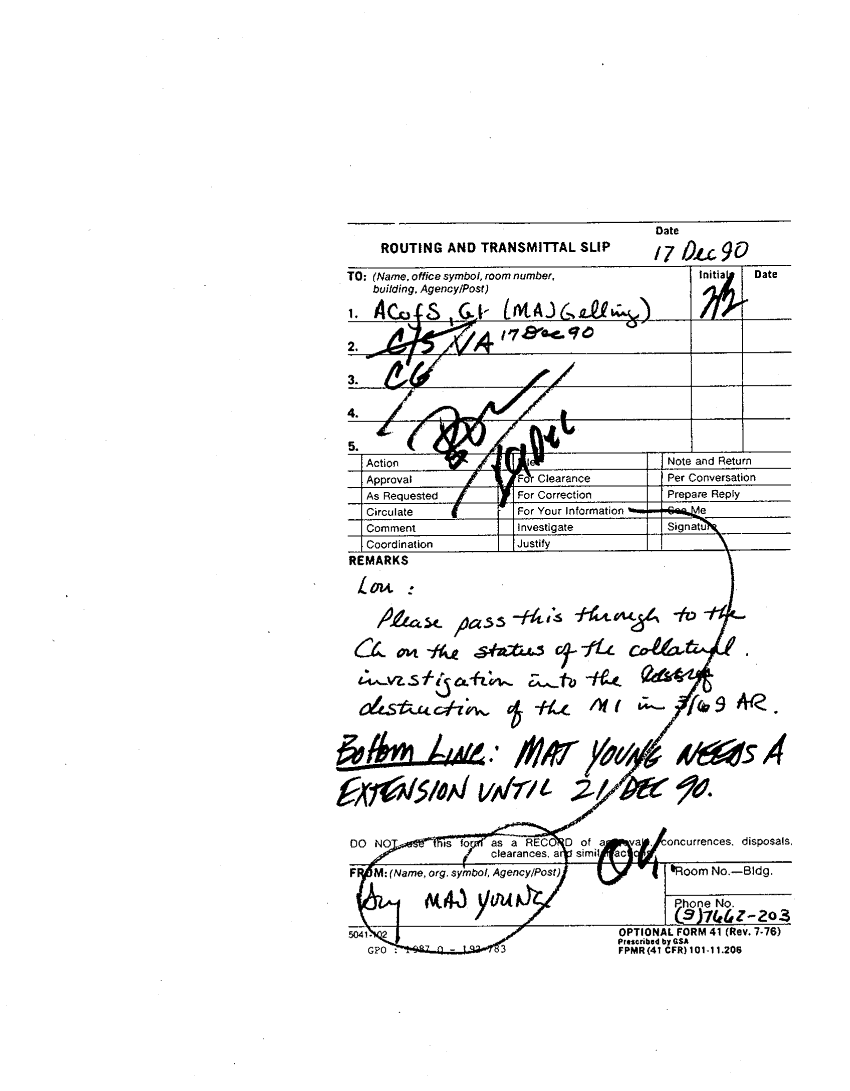 Date
ROUTING AND TRANSMITTAL SLIP 17 Dec 90
TO: (Name, office symbol, room number, Initials Date
building, Agency/Post)
1. ACofS, G1 (MAJ Gelling)
2. C/S VA 17 Dec 90
3. CG
4.
5.
19 Dec
Action File Note and Return
Approval For Clearance Per Conversation
As Requested For Correction Prepare Reply
Circulate For Your Information See Me
Comment Investigate Signature
Coordination Justify
REMARKS
Lou :
Please pass this through to the
CG on the status of the collateral
investigation into the
destruction of the M1 in 3/69 AR.
Bottom Line: MAJ YOUNG NEEDS A
EXTENSION UNTIL 21 DEC 90.
DO NOT use this form as a RECORD of approvals, concurrences, disposals,
clearances, and similar actions
FROM: (Name, org. symbol, Agency/Post) Room No.—Bldg.
MAJ YOUNG
Phone No.
(S)7662-203
5041-102 OPTIONAL FORM 41 (Rev. 7-76)
Prescribed by GSA
GPO : 1987 O - 192-783 FPMR (41 CFR) 101-11.206